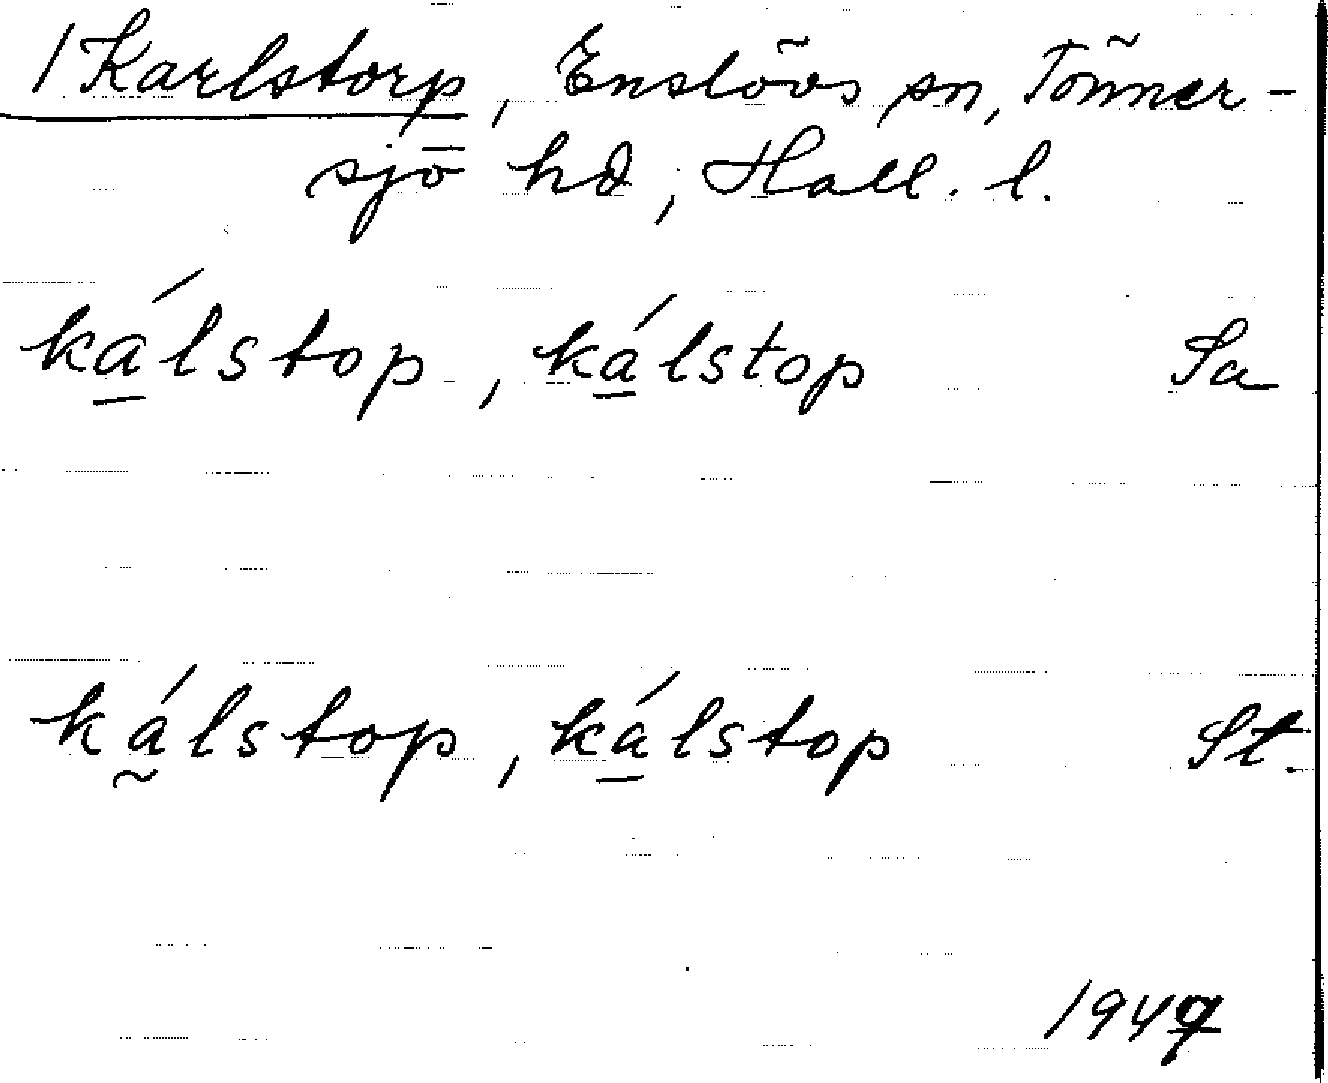 1 Karlstorp, Enslövs sn, Tönner-
sjö hd, Hall. l.
ká̱lstop, ká̱lstop Sa
ká̰lstop, ká̱lstop St.
1947